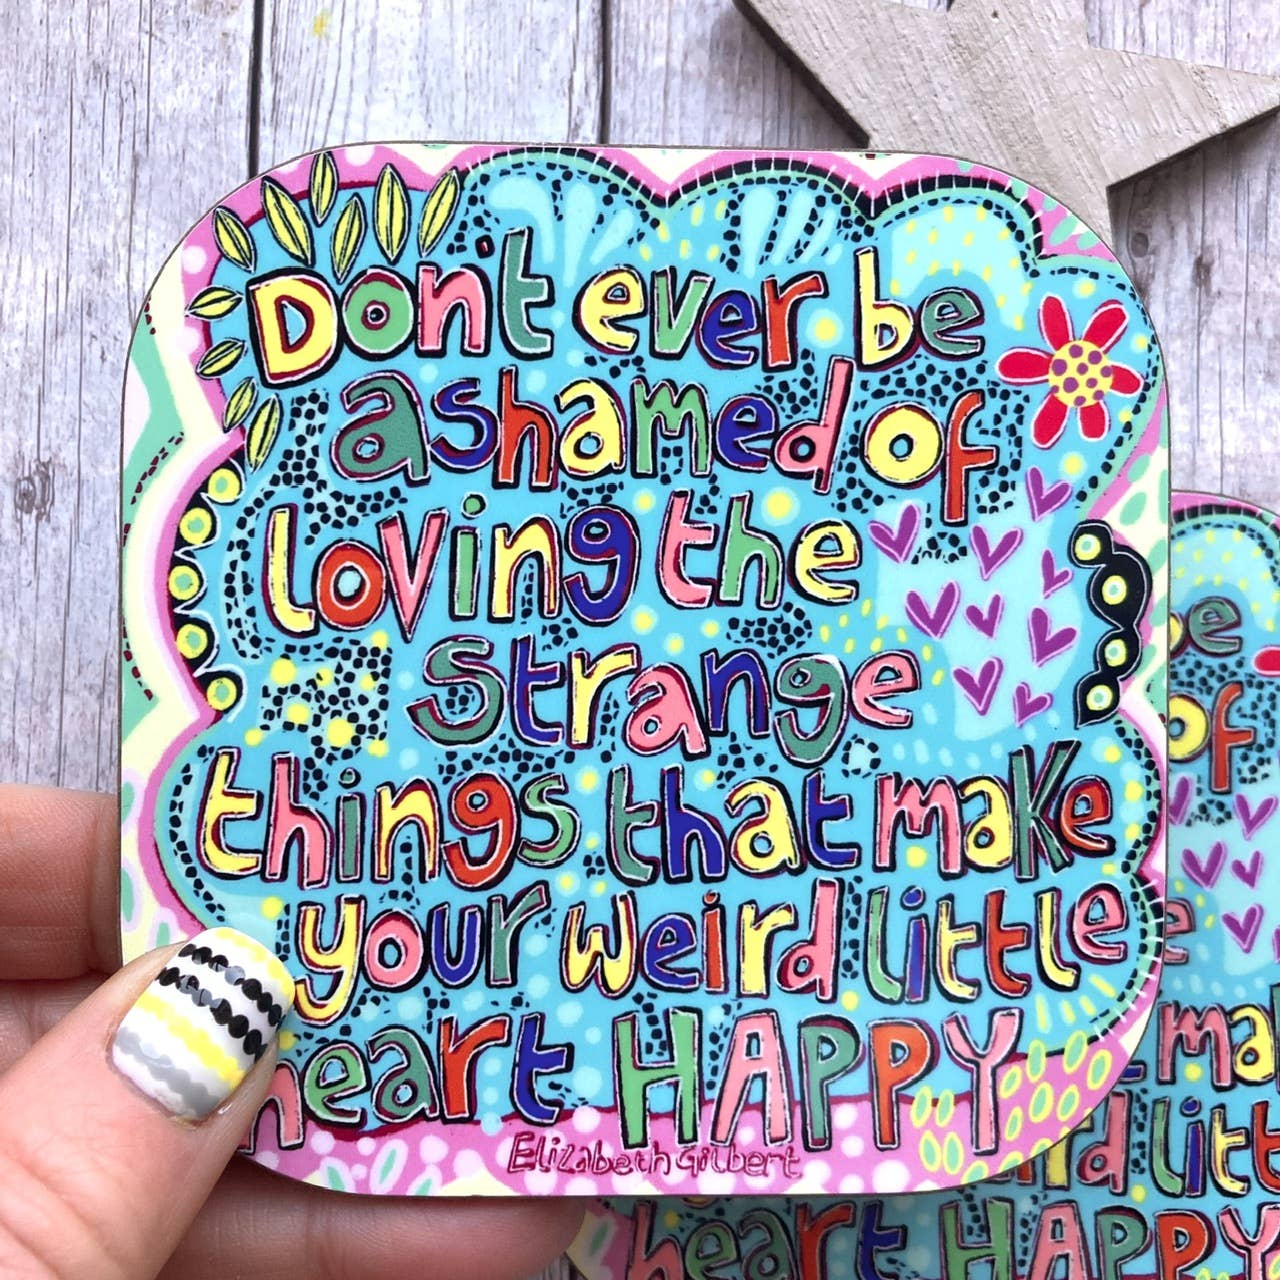 Don't ever be
ashamed of
loving the
strange
things that make
your weird little
heart HAPPY
Elizabeth Gilbert
be
of
e
ma
rd litt
heart HAPPY